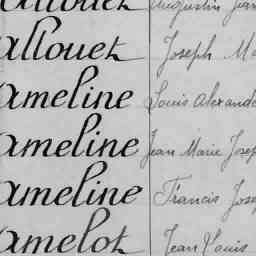 Allouet Augustin Jean
Allouet Joseph Ma
Ameline Louis Alexand
Ameline Jean Marie Josep
Ameline Francis Jose
Amelot Jean Louis